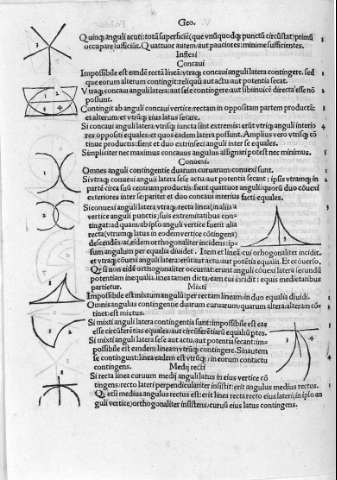 Geo.
Quinq; anguli acuti: totā superficiē; que vnū quodq; punctū circūstat: primū
occupare sufficiūt. Quattuor autem: aut pauciores: minime sufficientes.
Inflexi
Concaui
Impossibile est eundē rectā lineā: vtraq; concaui anguli latera contingere. sed
que eorum alterum contingit: reliquū aut actu aut potentia secat.
Vtraq; concaui angu latera: aut sese contingere aut sibi inuicē directa esse nō
possunt.
Contingit ab anguli concaui vertice: rectam in oppositam partem productā:
et alterum: et vtrūq; eius latus secare.
Si concaui anguli latera: vtrīq; iuncta sint extremis: erūt vtrīq; anguli interio
res oppositi equales: et quos eisdem latera possunt. Amplius vero
tinue productis: fient et duo extrinseci anguli inter se equales.
Simpliciter nec maximus concauus angulus assignari potest nec minimus.
Conuexi
Omnes anguli contingentie duarum curuarum: conuexi sunt.
Si vtraq; conuexi anguli latera sese actu aut potentia secant: ipsis vtramq; in
partē circa sua centrum productis: fient quattuor anguli: quorū duo cōuexi
exteriores inter se pariter et duo concaui interius facti equales.
Si conuexi anguli latera: vtraq; recta linea
vertice anguli punctis, suis extremitatibus con-
tingat: ad quam ab ipso anguli vertice fuerit alia
recta (vtrumq; latus in eodem vertice cōtingens)
descendēs: ac eidem orthogonaliter incidens: ip-
sum angulum per equalia diuidet. Item et linea cui orthogonaliter incidit,
et vtraq; cōuexi anguli latera: erūt aut actu aut potētia equalia. Et ecōuerso,
Q si non eidē orthogonaliter occurrat: erunt anguli cōuexi latera secundū
potentiam inequalis. linea tamen dicta, eam cui incidit: equis medietatibus
partietur.
Mixti
Impossibile est mixtum angulū: per rectam lineam in duo equalia diuidi.
Omnis angulus contingentie duarum curuarum: quarum altera alteram cō-
tinet: est mixtus.
Si mixti anguli latera contingentia sunt: impossibile est eas
esse circūferētias equales: aut circūferētias equidistantes.
Si mixti anguli latera sese aut actu, aut potentia secant: im-
possibile est eandem lineam vtrūq; contingere. Sin autem
se contingunt: linea eadem est vtrūq; in eorum contactu
contingens.
Medij recti
Si recta linea curuum medij anguli latus in eius vertice cō
tingens: recto lateri perpendiculariter insistit: erit angulus medius rectus.
Q si medius angulus rectus est: erit linea recta recto eius lateri, in ipso an-
guli vertice: orthogonaliter insistens: curuū eius latus contingens.